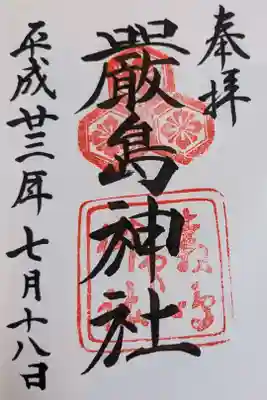 奉拝
嚴島神社
平成廿三年七月十八日